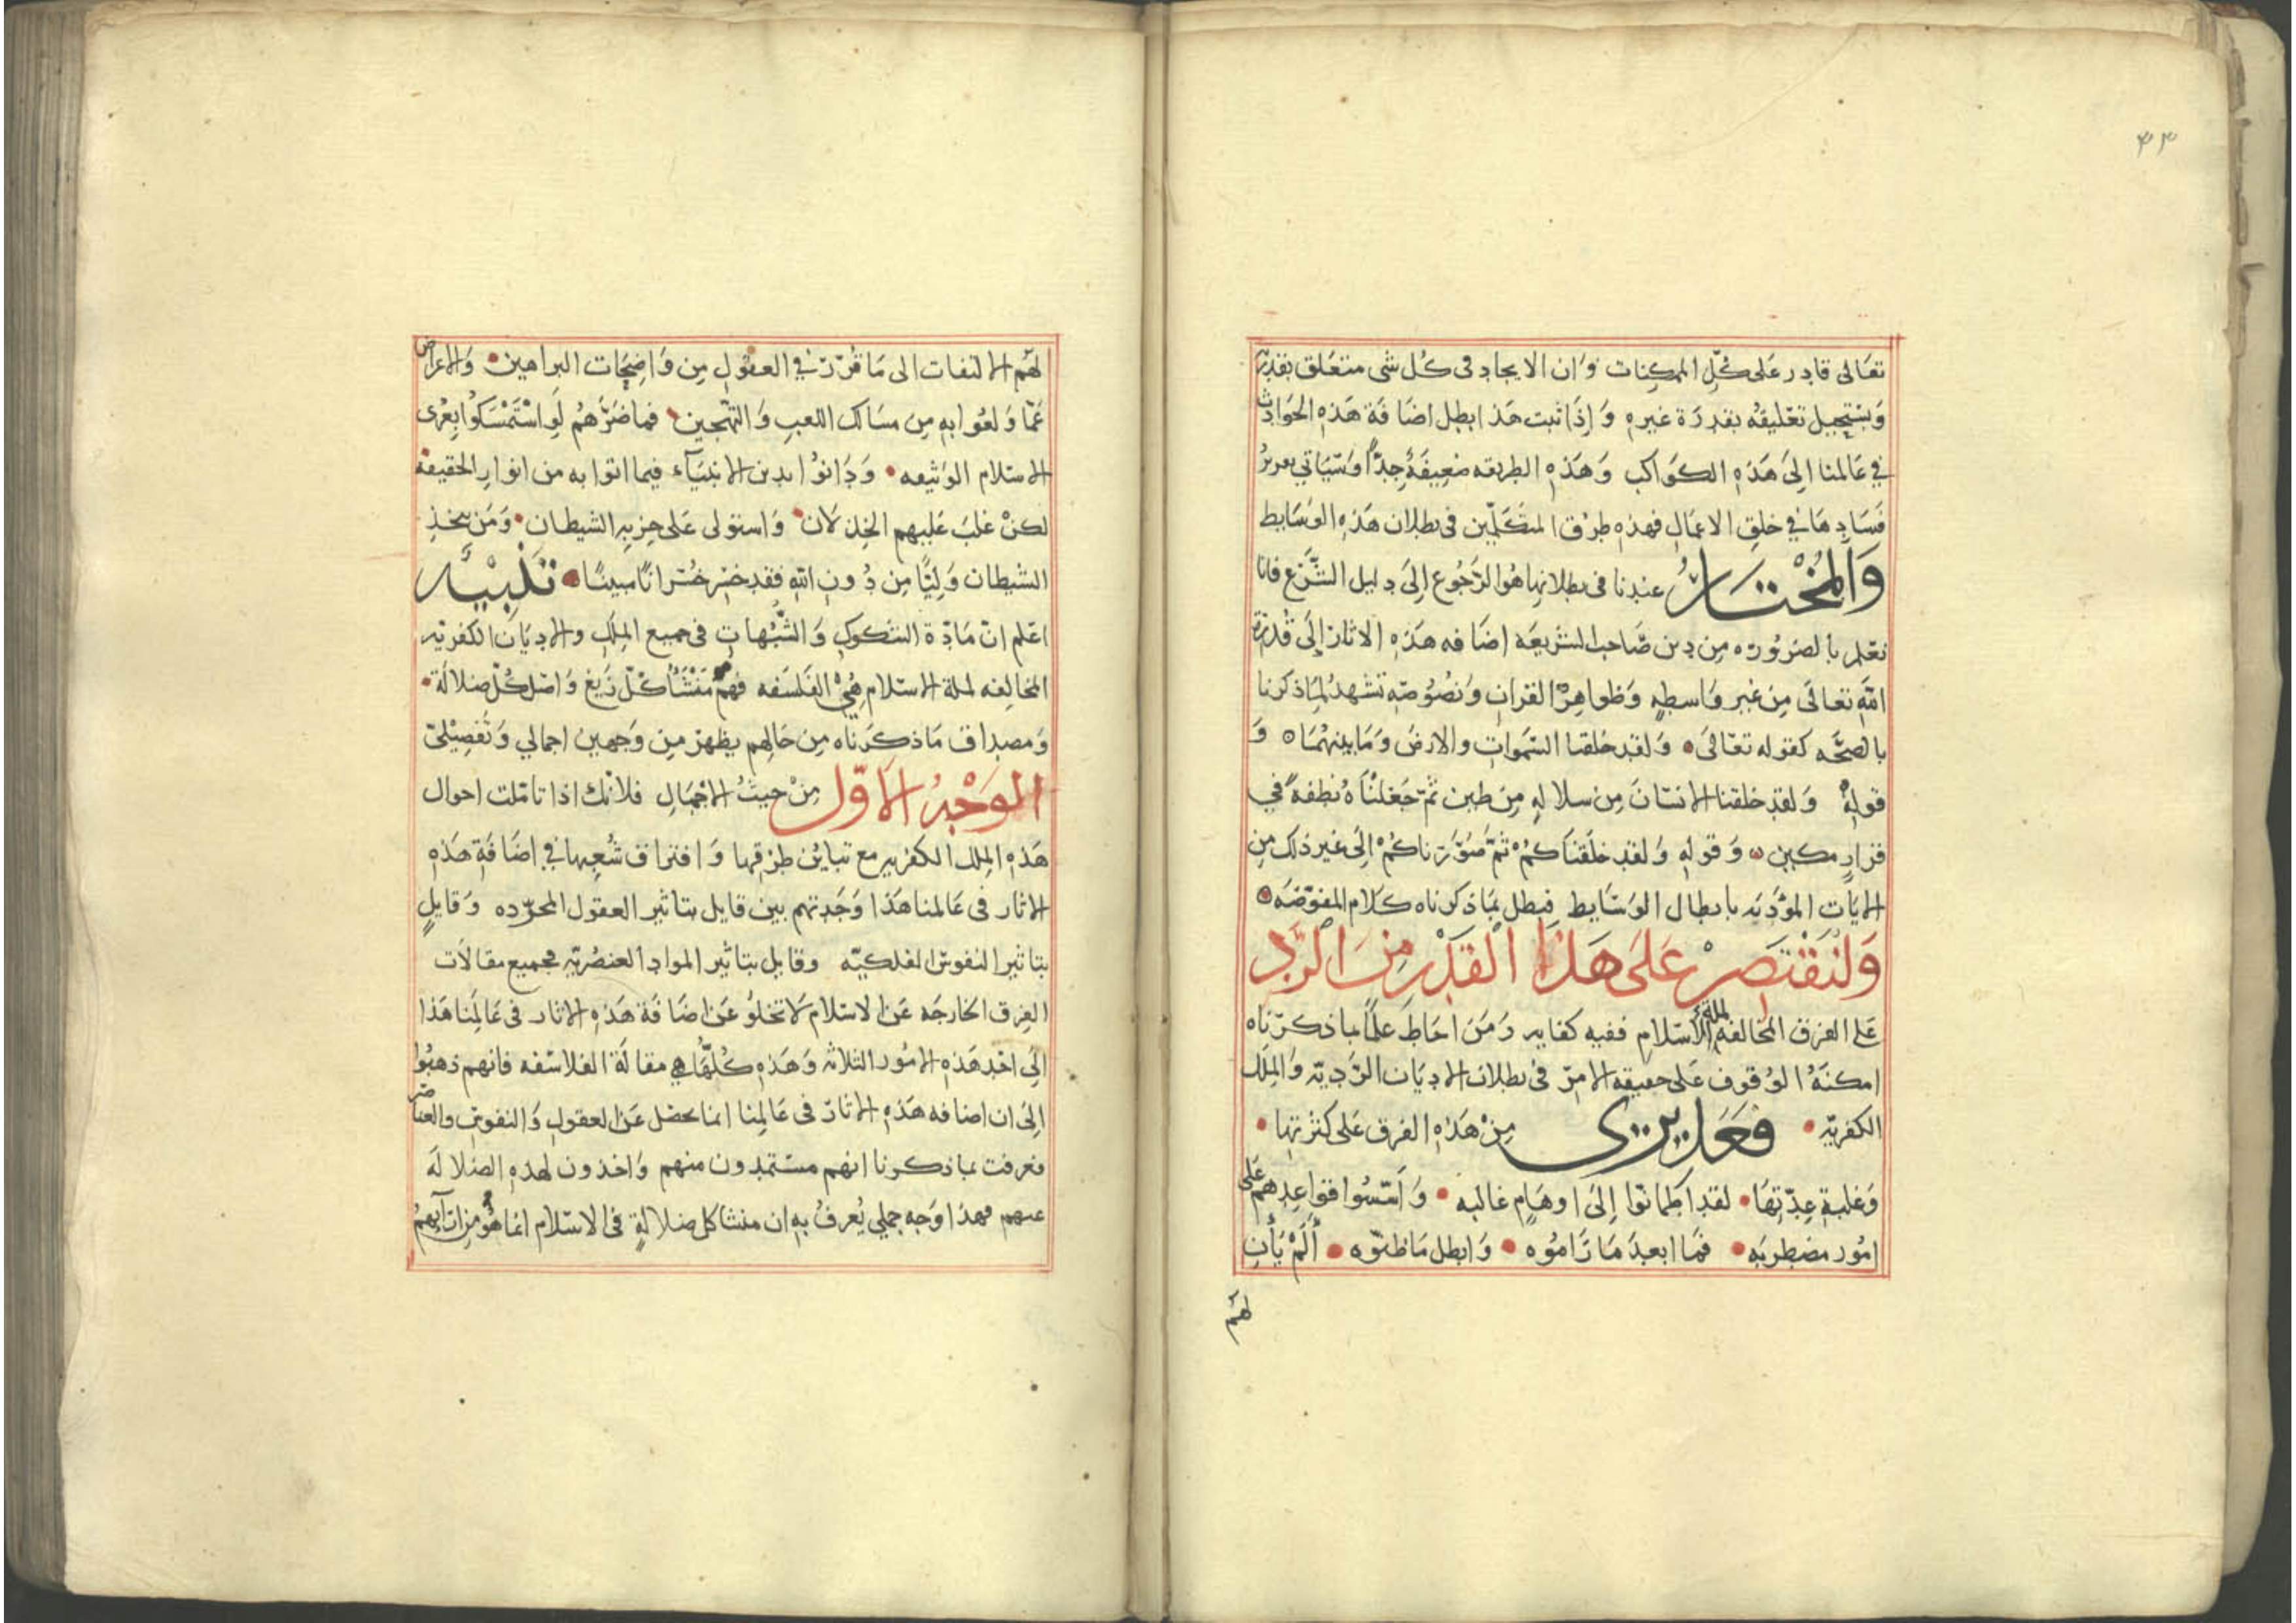 ٤٣
تعَالى قادر عَلى كُلِّ الممكِنات وَان الايجاد فى كُل شى متعَلق بقدرته
وَيستحِيل تعَليقهُ بقدرَة غيره وَإِذَا ثبت هَذا بطل اضَافَة هَذهِ الحوَادِث
في عَالمنا اِلىَ هَذهِ الكوَاكب وَهَذهِ الطريقه ضعِيفَةُ جِدًّا وَسَيَاتي تقريرُ
فسَادِهَا في خلقِ الاعمَالِ فهذهِ طرُق المتَكلّمِين فى بطلان هَذهِ الوسَايط
وَالمُخْتَارُ عندنا فى بطلانِها هُوَ الرّجُوع اِلىَ دليل الشَّرْع فانا
نعَلم بالضرُورَه مِن دِين صَاحب الشريعَه اضَافه هَذهِ الاثارِ اِلَى قُدرَة
اللهِ تعَالىَ مِن غير وَاسطهٍ وَظواهِرُ القرانِ وَنصُوصُه تشهدُ لمِاذكرنا
بالصحَّه كقوله تعَالىَ وَلقد خلقنا السَّموَاتِ والارضَ وَمَا بينهُمَا وَ
قوله وَلقد خلقنا الانسَانَ مِن سلالهٍ مِن طين ثمّ جَعَلنْاهُ نُطفةً في
قرارٍ مكينٍ وَقولهِ وَلقد خلَقنَاكمُ ثمَّ صَوّرَناكُم اِلَى غير ذلك مِن
الايَات المؤذِنَه بابطال الوسَايط فبطل بمَاذكرناه كلَام المفوّضَه
وَلنَقْتَصِرْ عَلىَ هَذا القَدْرِ مِنَ الرَّدِّ
عَلى الفرق المخالفة لملة الاسْلام ففيهِ كفايه وَمَن احَاط عَلماً بما ذكرْناه
امكنَهُ الوُقوف عَلى حقيقه الامرِّ فى بطلان الاديَان الرَّدِيّه وَالمِلَل
الكفريّه فعَل يزرى مِنْ هَذهِ الفرق عَلى كثرتِها
وَغلبةِ عِدّتِهَا لقد اطمَانّوا اِلىَ اوهَامٍ غالبه وَاسَّسُوا قوَاعِدهم عَلى
امُور مضطربَه فمَا ابعدَ مَارَامُوه وَابطل مَاظنّوه أَلَمْ يَأنِ
لهم
لهم الالتفات الى مَا قُرّرَ في العقوُلِ مِن وَاضِحَات البرَاهين وَالاعراض
عَمّا وَلعُوا بهِ مِن مسَالك اللعبِ وَالتهّجين فما ضَرَّهُم لَوِ اسْتَمْسَكوُا بِعُرى
الاسْلام الوثيقه وَدَانوُا بدين الانبيَآء فيما اتوا به من انوارِ الحقيقه
لكنْ غلبَ عَليهم الخِذلَان وَاستولى عَلى حِزبِه الشيطان وَمَن يتخذِ
الشيطان وَلِيًّا مِن دُونِ اللهِ فقد خسِر خُسْرانًا مبينًا تَنْبِيْه
اعَلم انّ مَادّة الشكوكِ وَالشّبُهاتِ فى جميع المِلَلِ والاديَان الكفريّه
المخالِفه لملة الاسْلام هِيَ الفَلسَفه فهُم مَنْشَأ كُلّ زَيغ وَاصْل كُلّ ضلالَة
وَمصدَاق مَا ذكرَناه مِن حَالهِم يظهر مِن وَجهين اجمالي وَتَفْصِيْليّ
الوَجْهُ الاَوّل مِنْ حَيثُ الاجمَالِ فلانّك اذا تامّلت احوال
هَذهِ المِلَل الكفريه مع تبايُن طرقها وَافترَاق شُعَبِها في اضَافَةِ هَذهِ
الاثار فى عَالمنا هَذا وَجَدتهم بين قايل بتاثير العقول المجرّده وَقايلٍ
بتاثير النفوسِ الفلكيّه وقايل بتاثير الموادِ العنصُريّه فجميع مقالَات
الفِرق الخارجَه عَن الاسْلام لَا تخلوُ عَن اضَافَة هَذهِ الاثار فى عَالمِنا هَذا
اِلىَ احَد هَذهِ الامُور الثلاثه وَهَذهِ كُلّهَا هِي مقالَة الفلاسفه فانهم ذهبُوا
اِلىَ ان اضافه هَذهِ الاثارِ فى عَالِمنا انما تحصل عَن العقولِ وَالنفوسِ والعناصر
فعرفت بماذكرنا انهم مستمدون منهم وَاخذون لهذهِ الضلالَه
عنهم فهذا وَجه جملي يُعرفُ بهِ ان منشا كل ضلالةٍ فى الاسْلام انما هُو مِن ارَآيهم